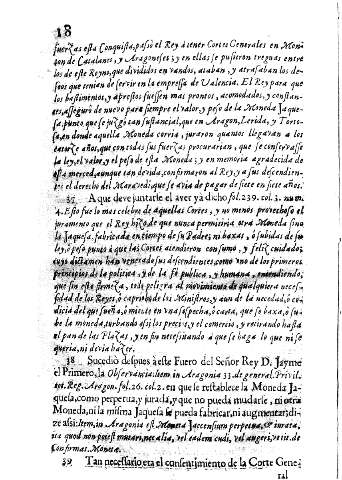 18
fuerzas esta Conquista, passò el Rey à tener Cortes Generales en Mon-
çon de Catalanes, y Aragoneses; y en ellas se pusieron treguas entre
los de este Reyno, que divididos en vandos, ataban, y atrasaban los de-
seos que tenian de servir en la empressa de Valencia. El Rey para que
los bastimentos, y aprestos fuessen mas promtos, acomodados, y constan-
tes, assegurò de nuevo para siempre el valor, y peso de la Moneda Jaque-
sa, punto que se juzgò tan sustancial, que en Aragon, Lerida, y Torto-
sa, en donde aquella Moneda corria, juraron quantos llegavan à los
catorze años, que con todas sus fuerzas procurarian, que se conservasse
la ley, el valor, y el peso de esta Moneda; y en memoria agradecida de
esta merced, aunque tan devida, confirmaron al Rey, y à sus descendien-
tes el derecho del Maravedi, que se avia de pagar de siete en siete años.
37 A que deve juntarle el aver yà dicho fol. 239. col. 3. num.
4. Esso fue lo mas celebre de aquellas Cortes, y no menos provechoso el
juramento que el Rey hizo, de que nunca permitiria otra Moneda sino
la Jaquesa, fabricada en tiempo de su Padre, ni baxas, ò subidas de su
ley, ò peso
principios de la politica, y de la fè publica, y humana, entendiendo,
que sin esta firmeza, trás peligra al movimiento de qualquiera necesi-
dad de los Reyes, ò capricho de los Ministros, y aun de la necedad, ò co-
dicia del que sueña, ò miente en una sospecha, ò causa, que se baxa, ò su-
be la moneda, turbando assi los precios, y el comercio, y retirando hasta
el pan de las Plazas, y en fin necessitando à que se haga lo que ni se
queria, ni devia hazer.
38 Sucediò despues à este Fuero del Señor Rey D. Jayme
el Primero, la Observancia: Item in Aragonia 33. de general. Privil.
tot. Reg. Aragon. fol. 26. col. 2. en que se restablece la Moneda Ja-
quesa, como perpetua, y jurada, y que no pueda mudarse, ni otra
Moneda, ni la misma Jaquesa se pueda fabricar, ni augmentar; di-
ze assi: Item, in Aragonia est Moneta Jaccensium perpetua, & iurata,
ita quod non potest mutari, nec alia, vel eadem cudi, vel augeri, veris de
Confirmas. Moneta.
39 Tan necessario era el consentimiento de la Corte Gene-
ral